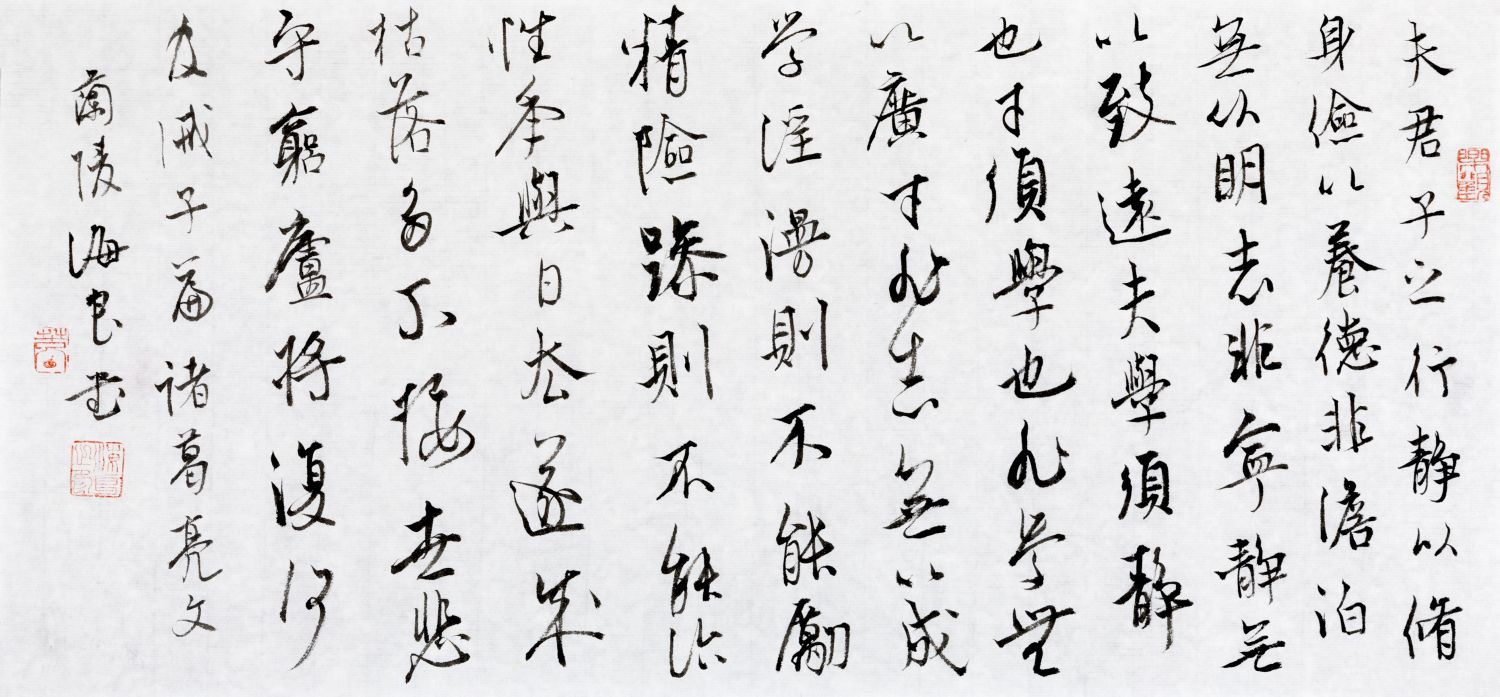 夫君子之行静以脩
身儉以養德非澹泊
無以明志非寧静無
以致遠夫學須静
也才須學也非学無
以廣才非志無以成
学淫漫則不能勵
精險躁則不能治
性年與日去遂成
枯落多不接世悲
守窮廬將復何
及誡子篇諸葛亮文
蘭陵海書